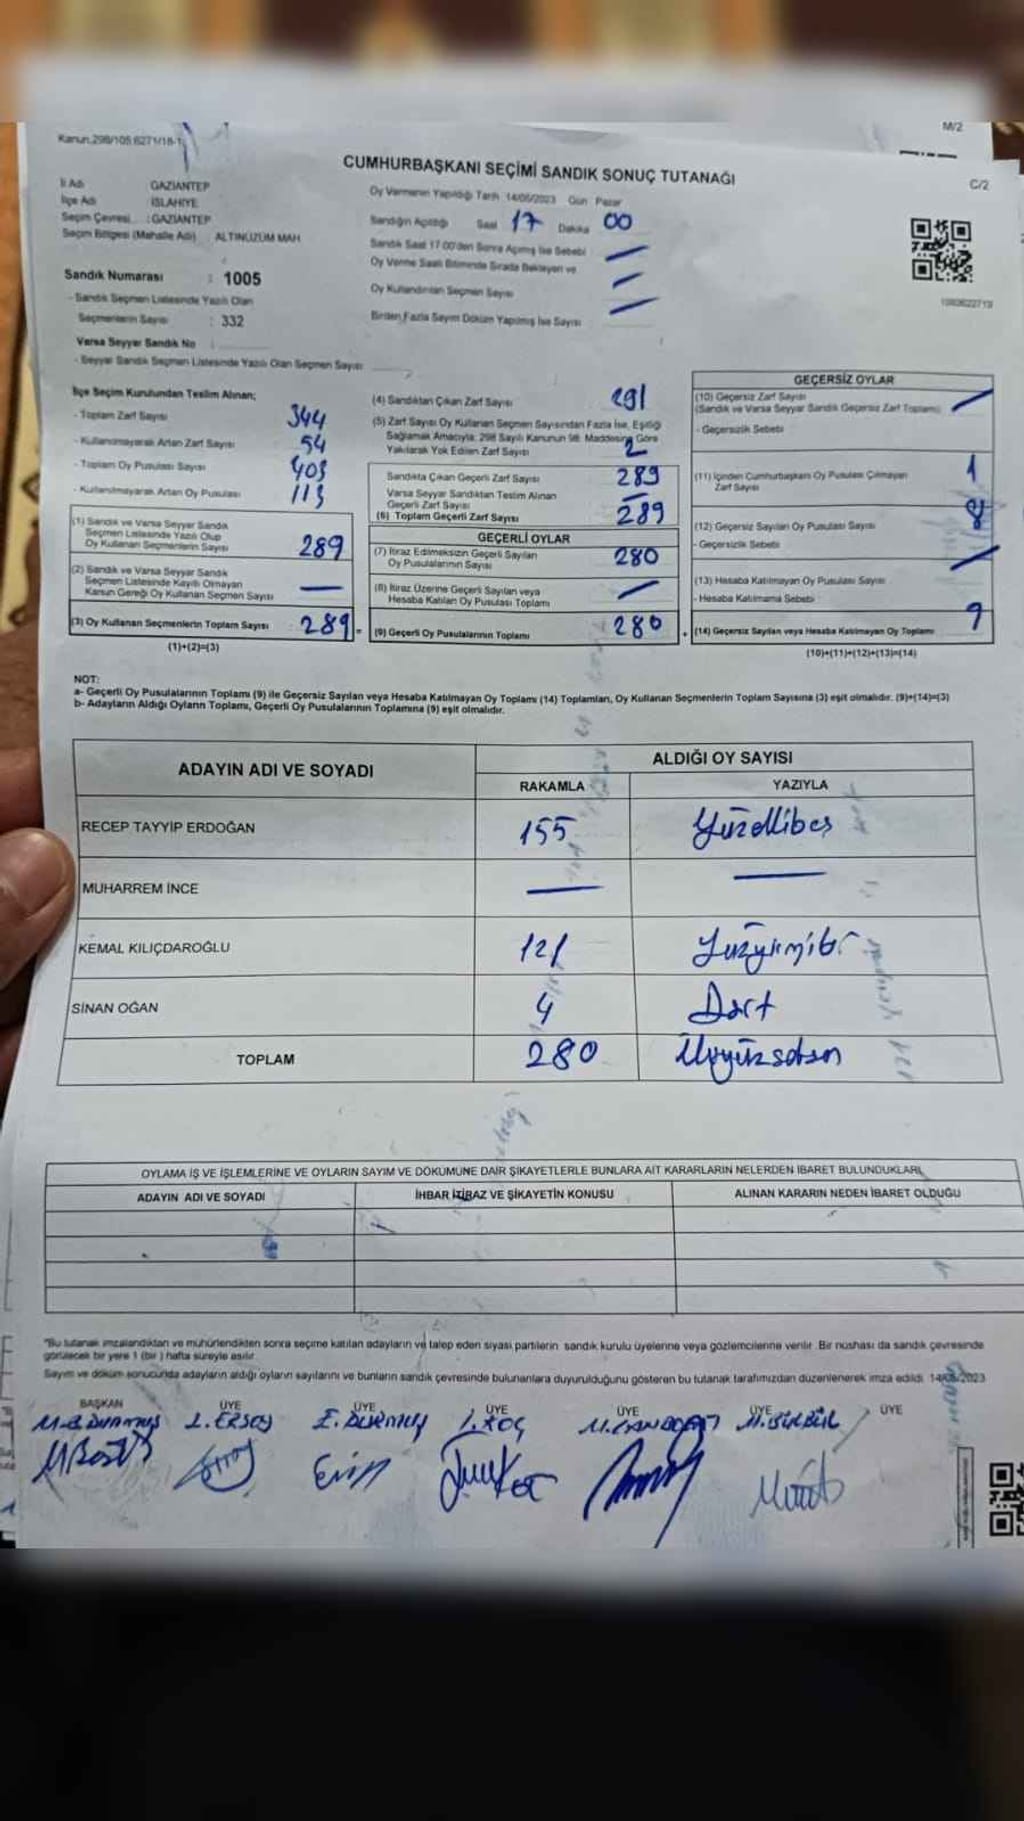 Kanun.298/105.6271/18-1
M/2
CUMHURBAŞKANI SEÇİMİ SANDIK SONUÇ TUTANAĞI
C/2
İl Adı GAZİANTEP
İlçe Adı İSLAHİYE
Seçim Çevresi : GAZİANTEP
Seçim Bölgesi (Mahalle Adı) ALTINÜZÜM MAH
Sandık Numarası : 1005
- Sandık Seçmen Listesinde Yazılı Olan
Seçmenlerin Sayısı : 332
Varsa Seyyar Sandık No :
- Seyyar Sandık Seçmen Listesinde Yazılı Olan Seçmen Sayısı
Oy Vermenin Yapıldığı Tarih 14/05/2023 Gün Pazar
Sandığın Açıldığı Saat 17 Dakika 00
Sandık Saat 17.00'den Sonra Açılmış İse Sebebi
Oy Verme Saati Bitiminde Sırada Bekleyen ve
Oy Kullandırılan Seçmen Sayısı
Birden Fazla Sayım Döküm Yapılmış İse Sayısı
İlçe Seçim Kurulundan Teslim Alınan;
- Toplam Zarf Sayısı 344
- Kullanılmayarak Artan Zarf Sayısı 54
- Toplam Oy Pusulası Sayısı 403
- Kullanılmayarak Artan Oy Pusulası 113
(1) Sandık ve Varsa Seyyar Sandık
Seçmen Listesinde Yazılı Olup
Oy Kullanan Seçmenlerin Sayısı 289
(2) Sandık ve Varsa Seyyar Sandık
Seçmen Listesinde Kayıtlı Olmayan
Kanun Gereği Oy Kullanan Seçmen Sayısı —
(3) Oy Kullanan Seçmenlerin Toplam Sayısı 289
(1)+(2)=(3)
(4) Sandıktan Çıkan Zarf Sayısı 291
(5) Zarf Sayısı Oy Kullanan Seçmen Sayısından Fazla İse, Eşitliği
Sağlamak Amacıyla; 298 Sayılı Kanunun 98. Maddesine Göre
Yakılarak Yok Edilen Zarf Sayısı 2
Sandıkta Çıkan Geçerli Zarf Sayısı 289
Varsa Seyyar Sandıktan Teslim Alınan
Geçerli Zarf Sayısı —
(6) Toplam Geçerli Zarf Sayısı 289
GEÇERLİ OYLAR
(7) İtiraz Edilmeksizin Geçerli Sayılan
Oy Pusulalarının Sayısı 280
(8) İtiraz Üzerine Geçerli Sayılan veya
Hesaba Katılan Oy Pusulası Toplamı
(9) Geçerli Oy Pusulalarının Toplamı 280
GEÇERSİZ OYLAR
(10) Geçersiz Zarf Sayısı
(Sandık ve Varsa Seyyar Sandık Geçersiz Zarf Toplamı)
- Geçersizlik Sebebi
(11) İçinden Cumhurbaşkanı Oy Pusulası Çıkmayan
Zarf Sayısı 1
(12) Geçersiz Sayılan Oy Pusulası Sayısı 8
- Geçersizlik Sebebi
(13) Hesaba Katılmayan Oy Pusulası Sayısı
- Hesaba Katılmama Sebebi
(14) Geçersiz Sayılan veya Hesaba Katılmayan Oy Toplamı 9
(10)+(11)+(12)+(13)=(14)
NOT:
a- Geçerli Oy Pusulalarının Toplamı (9) ile Geçersiz Sayılan veya Hesaba Katılmayan Oy Toplamı (14) Toplamları, Oy Kullanan Seçmenlerin Toplam Sayısına (3) eşit olmalıdır. (9)+(14)=(3)
b- Adayların Aldığı Oyların Toplamı, Geçerli Oy Pusulalarının Toplamına (9) eşit olmalıdır.
ADAYIN ADI VE SOYADI
ALDIĞI OY SAYISI
RAKAMLA YAZIYLA
RECEP TAYYİP ERDOĞAN 155 Yüzellibeş
MUHARREM İNCE — —
KEMAL KILIÇDAROĞLU 121 Yüzyirmibir
SİNAN OĞAN 4 Dört
TOPLAM 280 İkiyüzseksen
OYLAMA İŞ VE İŞLEMLERİNE VE OYLARIN SAYIM VE DÖKÜMÜNE DAİR ŞİKAYETLERLE BUNLARA AİT KARARLARIN NELERDEN İBARET BULUNDUKLARI
ADAYIN ADI VE SOYADI İHBAR İTİRAZ VE ŞİKAYETİN KONUSU ALINAN KARARIN NEDEN İBARET OLDUĞU
"Bu tutanak imzalandıktan ve mühürlendikten sonra seçime katılan adayların ve talep eden siyasi partilerin sandık kurulu üyelerine veya gözlemcilerine verilir. Bir nüshası da sandık çevresinde
görülecek bir yere 1 (bir) hafta süreyle asılır.
Sayım ve döküm sonucunda adayların aldığı oyların sayılarını ve bunların sandık çevresinde bulunanlara duyurulduğunu gösteren bu tutanak tarafımızdan düzenlenerek imza edildi. 14/05/2023
BAŞKAN ÜYE ÜYE ÜYE ÜYE ÜYE ÜYE
İ. ERSOY İ. KOÇ M. BÜLBÜL